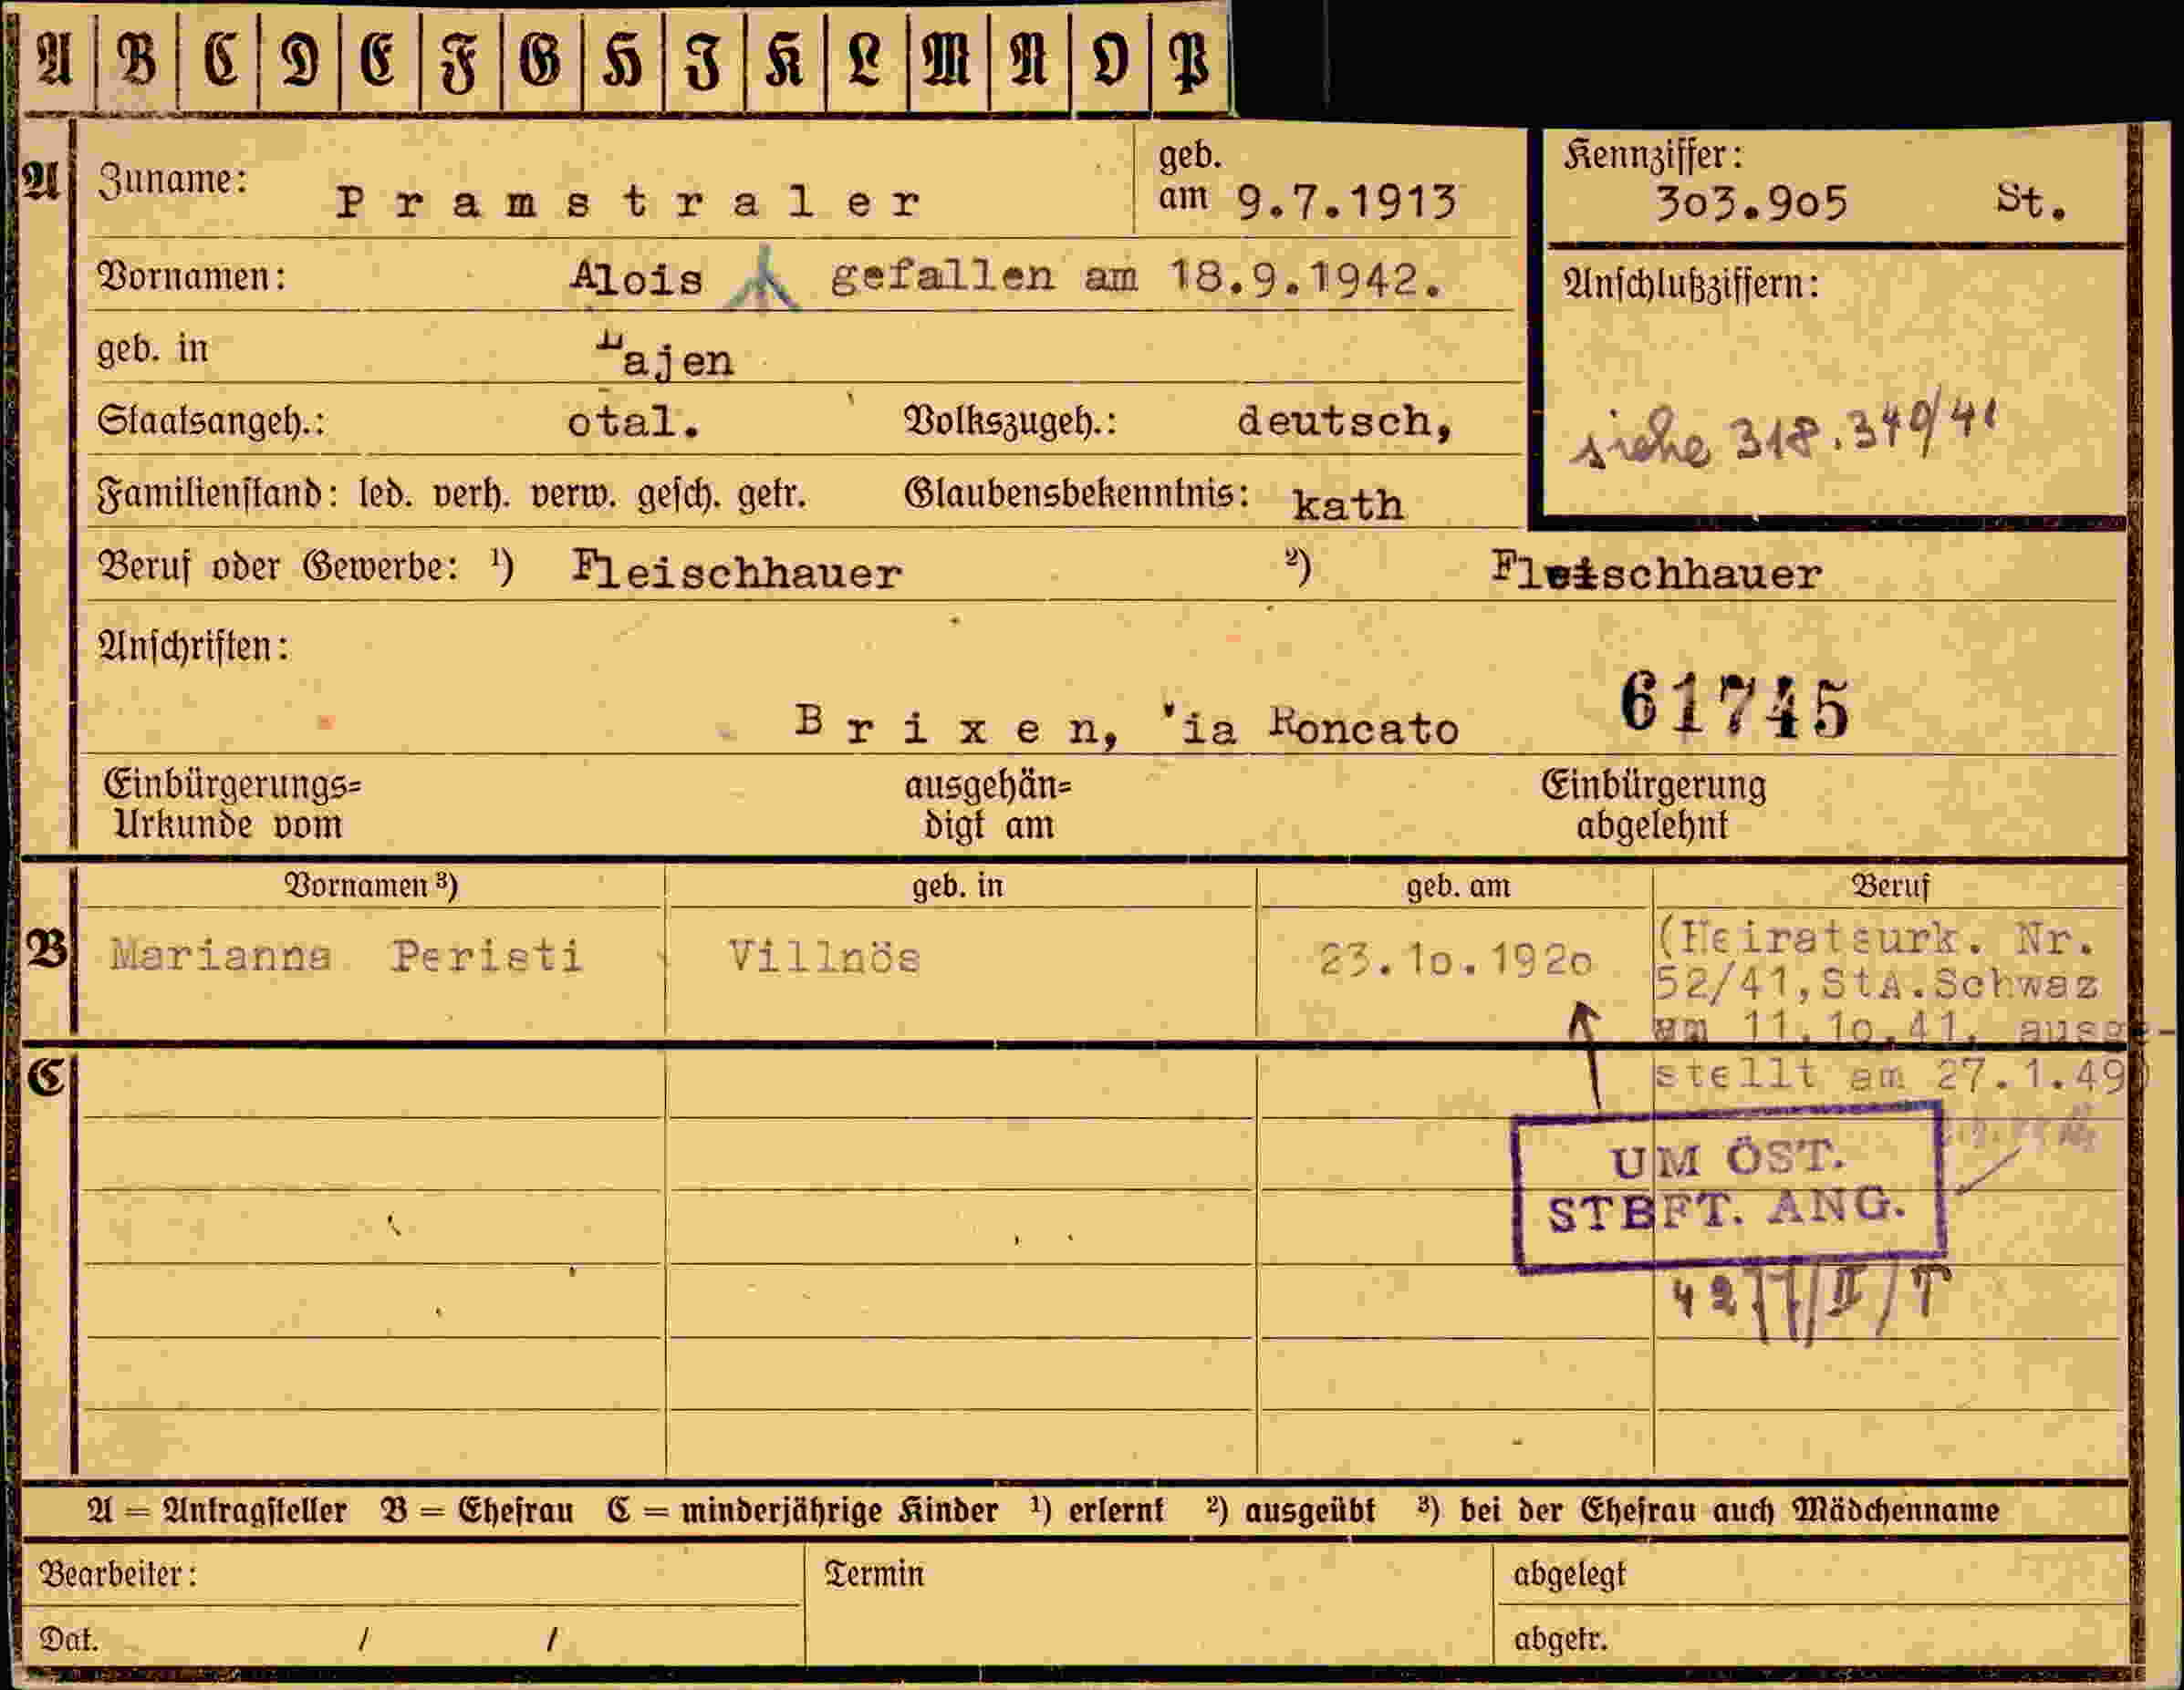 A B C D E F G H I K L M N O P
A
Zuname: Pramstraler
geb. am 9.7.1913
Kennziffer: 303.905 St.
Vornamen: Alois gefallen am 18.9.1942.
Anschlußziffern:
siehe 318.340/41
geb. in Lajen
Staatsangeh.: otal. Volkszugeh.: deutsch,
Familienstand: led. verh. verw. gesch. getr. Glaubensbekenntnis: kath
Beruf oder Gewerbe: ¹) Fleischhauer ²) Fleischhauer
Anschriften:
61745
Brixen, Via Roncato
Einbürgerungs=
Urkunde vom
ausgehän=
digt am
Einbürgerung
abgelehnt
B
Vornamen ³) geb. in geb. am Beruf
Marianna Peristi Villnös 23.10.1920
(Heiratsurk. Nr.
52/41,StA.Schwaz
am 11.10.41, ausge-
stellt am 27.1.49)
C
UM ÖST.
STBFT. ANG.
A = Antragsteller B = Ehefrau C = minderjährige Kinder ¹) erlernt ²) ausgeübt ³) bei der Ehefrau auch Mädchenname
Bearbeiter: Termin abgelegt
Dat. / / abgetr.